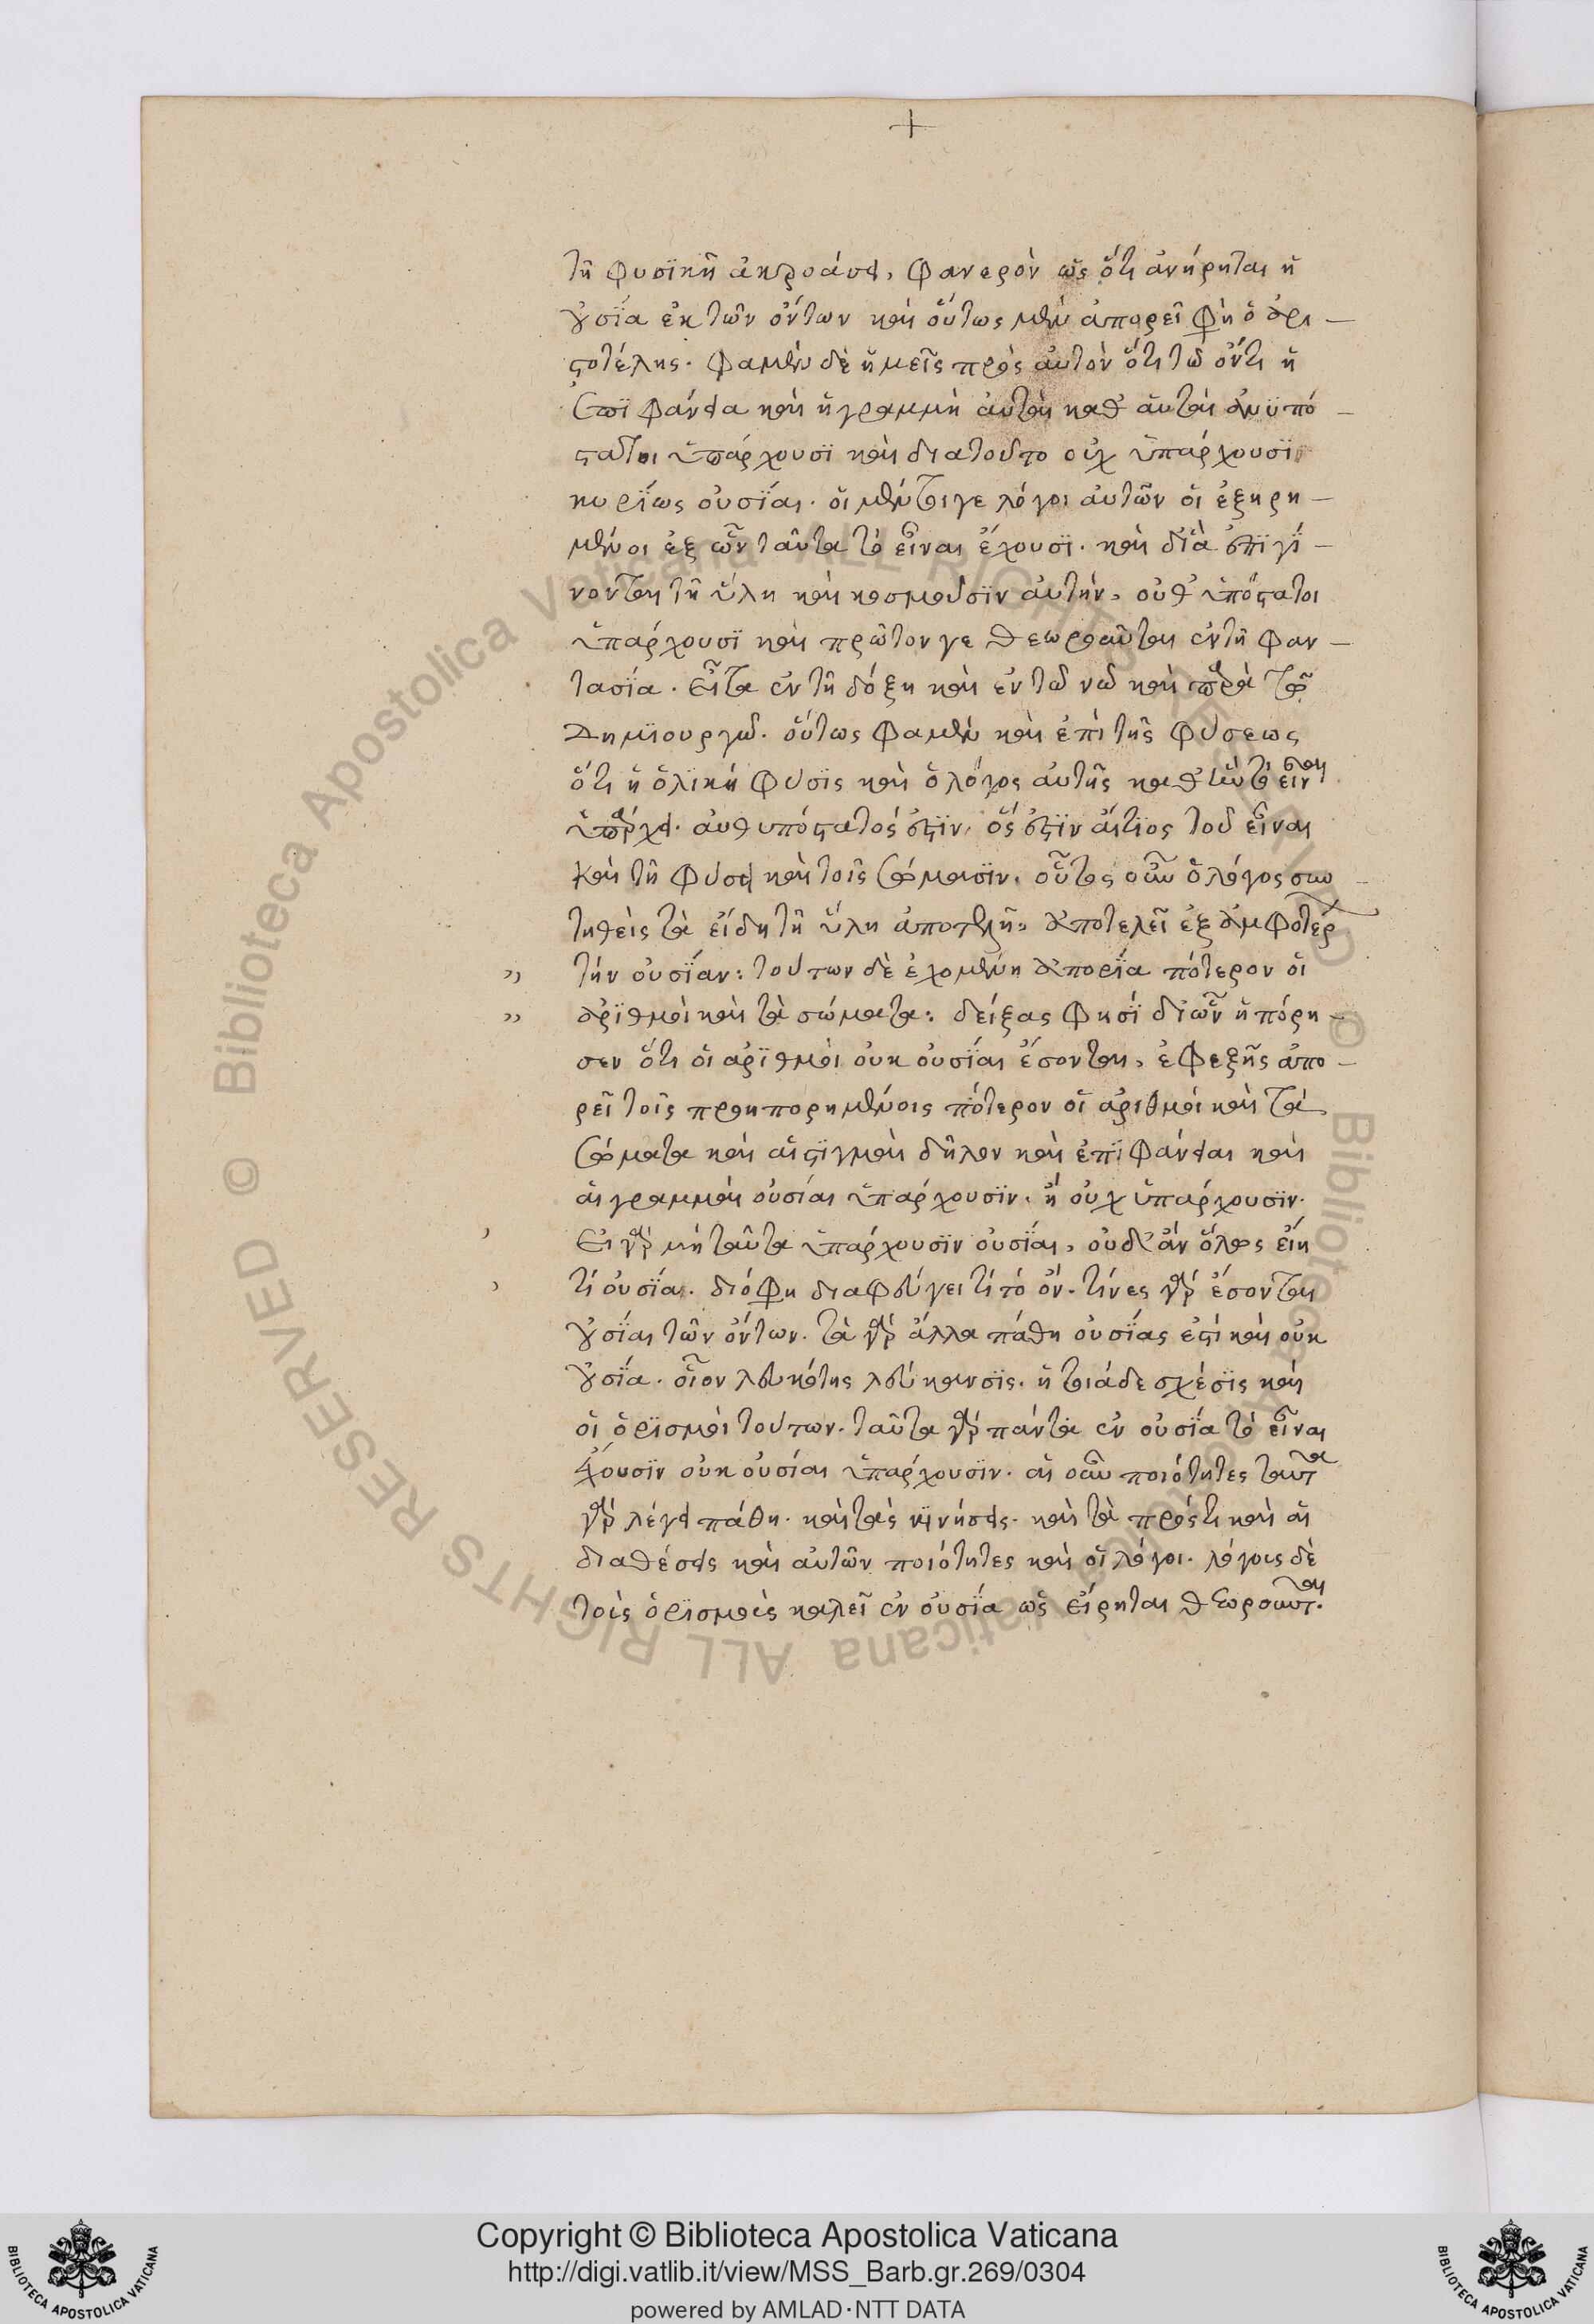 +
τῆ φυσϊκῆ ἀκροάσει, φανερὸν ὡς ὅτι ἀνήρηται ἡ
οὐσΐα ἐκ τῶν ὄντων καὶ οὕτως μὲν ἀπορεῖ φη ὁ ἀρι—
στοτέλης. φαμὲν δὲ ἡμεῖς πρὸς αὐτὸν ὅτι τῶ ὄντι ἡ
ἐπϊφάνεια καὶ ἡ γραμμὴ αὐταὶ καθ αὑταὶ ἀνϋπό—
στατοι ὑπάρχουσϊ καὶ διατοῦτο οὐχ ὑπάρχουσϊ
κυρΐως οὐσΐαι. οἱ μέντοιγε λόγοι αὐτῶν οἱ ἐξηρη—
μένοι ἐξ ὧν ταῦτα τὸ εἶναι ἔχουσϊ. καὶ δϊὰ ἐπϊγΐ—
νονται τῆ ὕλη καὶ κοσμοῦσϊν αὐτήν, αὐθυπόστατοι
ὑπάρχουσϊ καὶ πρῶτον γε θεωροῦνται ἐν τῆ φαν—
τασΐα. εἶτα ἐν τῆ δόξη καὶ ἐν τῶ νῶ καὶ παρὰ τῶ
Δημϊουργῶ. οὕτως φαμὲν καὶ ἐπὶ τῆς φύσεως
ὅτι ἡ ὁλϊκὴ φύσϊς καὶ ὁ λόγος αὐτῆς καθ
ὑπάρχει. αὐθυπόστατός ἐστϊν, ὅς ἐστϊν αἴτϊος τοῦ εἶναι
καὶ τῆ φύσει καὶ τοῖς σώμασϊν. οὗτος οὖν ὁ λόγος συν
τηθεὶς τὰ εἴδη τῆ ὕλη ἀποτελῆ, ἀποτελεῖ ἐξ ἀμφοτέρων
" τήν οὐσΐαν: τούτων δὲ ἐχομένη ἀπορΐα πότερον οἱ
" ἀρϊθμοὶ καὶ τὰ σώματα: δείξας φησΐ δϊὧν ἠπόρη—
σεν ὅτι οἱ ἀρϊθμοὶ οὐκ οὐσΐαι ἔσονται, ἐφεξῆς ἀπο—
ρεῖ τοῖς προηπορημένοις πότερον οἱ ἀριθμοί καὶ τὰ
σώματα καὶ αἱ στϊγμαὶ δῆλον καὶ ἐπϊφάνειαι καὶ
αἱ γραμμαὶ οὐσίαι ὑπάρχουσϊν, ἢ οὐχ ὑπάρχουσϊν.
, Εἰ γὰρ μὴ ταῦτα ὑπάρχουσϊν οὐσΐαι, οὐδ' ἂν ὅλως εἴη
, τί οὐσΐα. διό φη διαφεύγει τί τὸ ὄν. τίνες γὰρ ἔσονται
οὐσΐαι τῶν ὄντων. τὰ γὰρ ἄλλα πάθη οὐσΐας ἐστὶ καὶ οὐκ
οὐσΐα. οἷον λευκότης λεύκανσϊς. ἡ τοιάδε σχέσϊς καὶ
οἱ ὁρϊσμοὶ τούτων. ταῦτα γὰρ πάντα ἐν οὐσΐα τὸ εἶναι
ἔχουσϊν οὐκ οὐσίαι ὑπάρχουσϊν. αἱ οὖν ποιότητες ταῦτα
γὰρ λέγει πάθη. καὶ τὰς κϊνήσεις. καὶ τὰ πρός τι καὶ αἱ
διαθέσεις καὶ αὐτῶν ποιότητες καὶ οἱ λόγοι. λόγοις δὲ
τοὶς ὁρϊσμοὶς καλεῖ ἐν οὐσΐα ὡς εἴρηται θεωροῦνται.
© Biblioteca Apostolica Vaticana ALL RIGHTS RESERVED
© Biblioteca Apostolica Vaticana ALL RIGHTS RESERVED
Copyright © Biblioteca Apostolica Vaticana
http://digi.vatlib.it/view/MSS_Barb.gr.269/0304
powered by AMLAD·NTT DATA
BIBLIOTECA APOSTOLICA VATICANA
BIBLIOTECA APOSTOLICA VATICANA